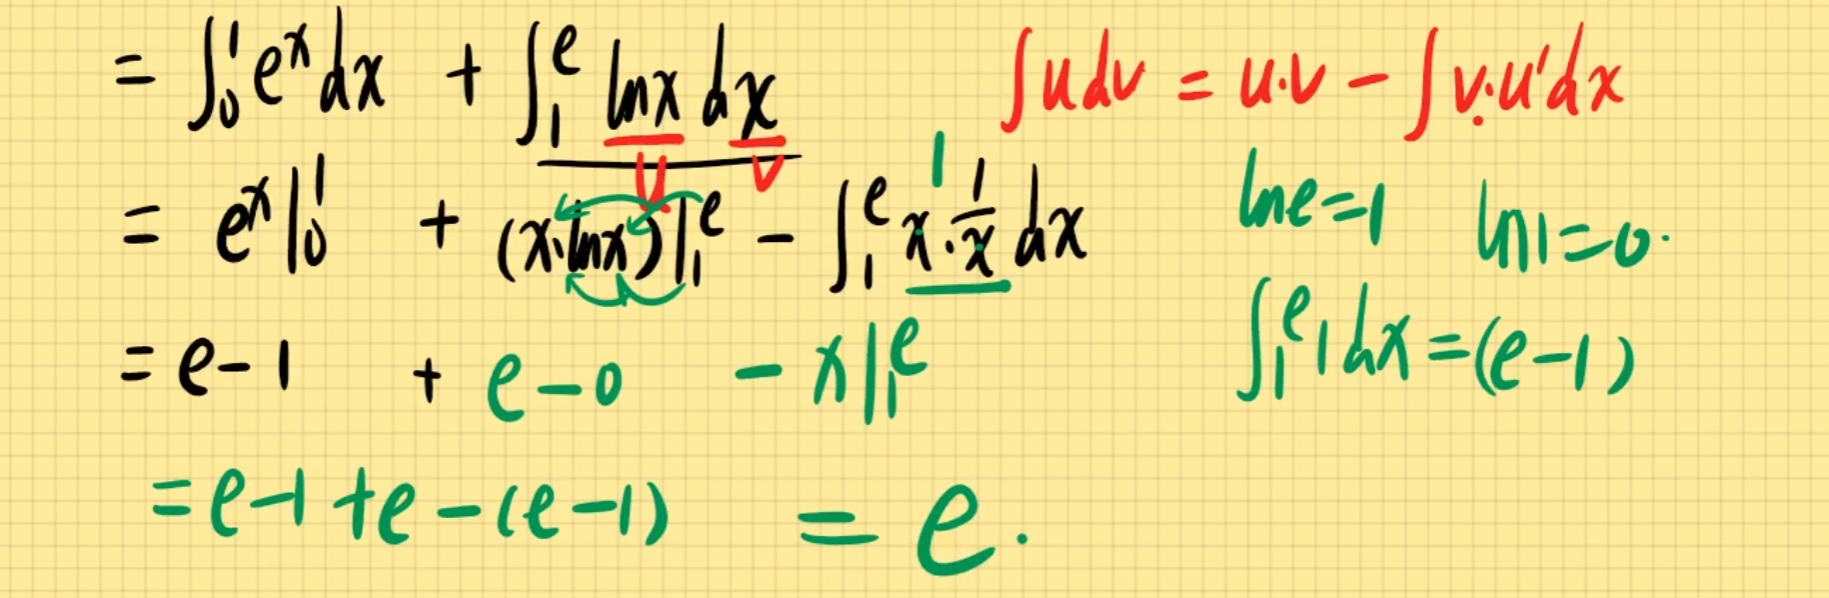 = ∫₀¹ eˣ dx + ∫₁ᵉ lnx dx ∫udv = u·v − ∫v·u'dx
u v
1
= eˣ|₀¹ + (x·lnx)|₁ᵉ − ∫₁ᵉ x·1/x dx lne=1 ln1=0.
= e−1 + e−0 − x|₁ᵉ ∫₁ᵉ 1dx=(e−1)
= e−1+e−(e−1) = e.